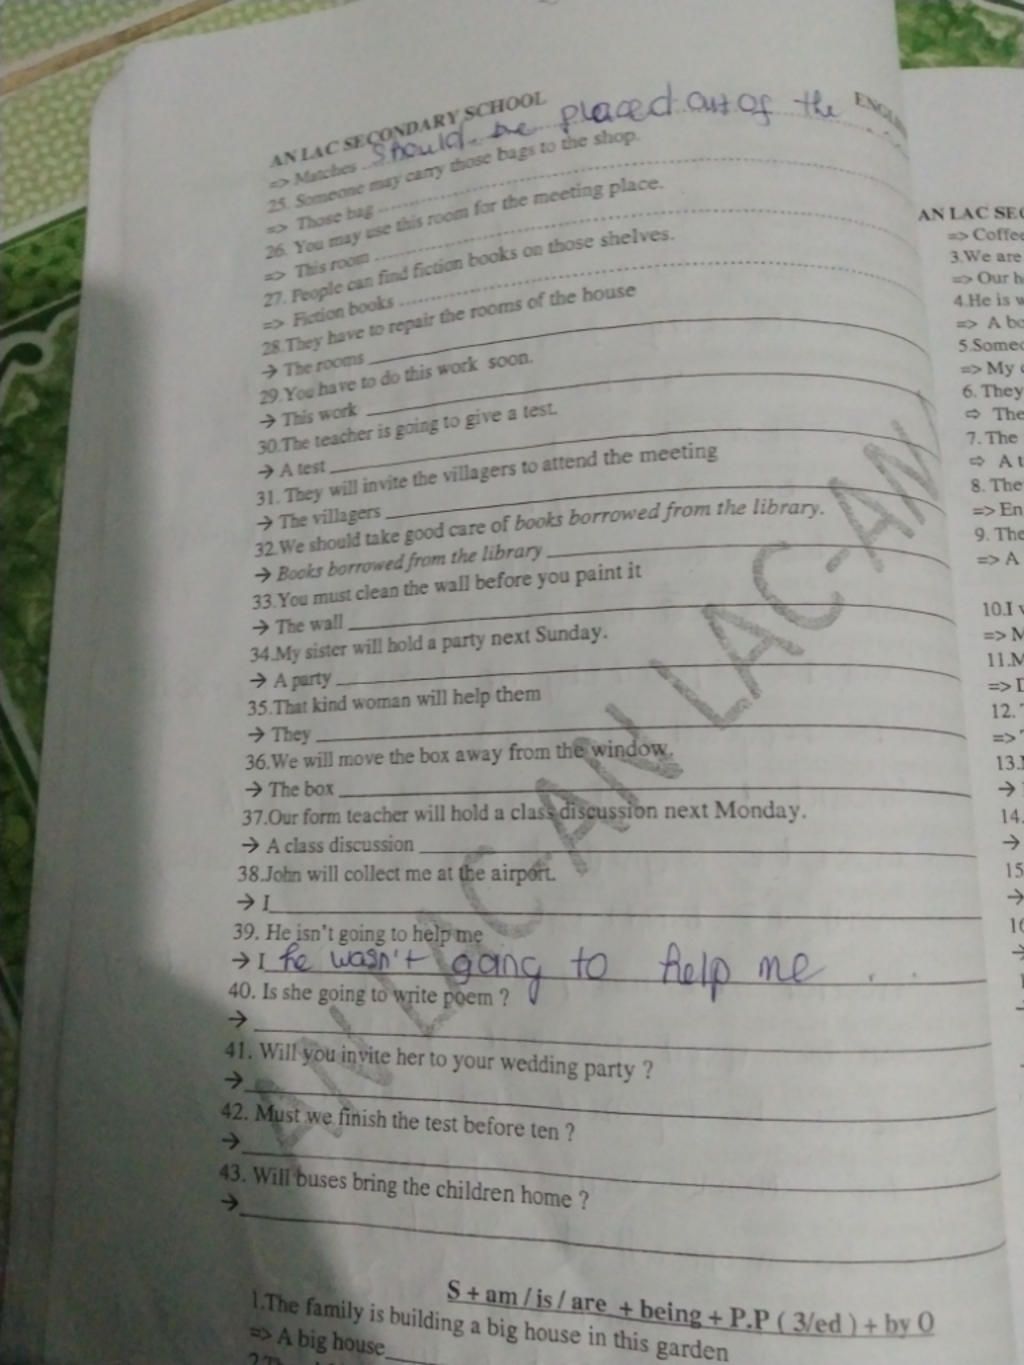 AN LAC SECONDARY SCHOOL
=> Matches should be placed out of the
25. Someone may carry those bags to the shop.
=> Those bag
26. You may use this room for the meeting place.
=> This room
27. People can find fiction books on those shelves.
=> Fiction books
28.They have to repair the rooms of the house
→ The rooms
29.You have to do this work soon.
→ This work
30.The teacher is going to give a test.
→ A test
31. They will invite the villagers to attend the meeting
→ The villagers
32.We should take good care of books borrowed from the library.
→ Books borrowed from the library
33.You must clean the wall before you paint it
→ The wall
34.My sister will hold a party next Sunday.
→ A party
35.That kind woman will help them
→ They
36.We will move the box away from the window.
→ The box
37.Our form teacher will hold a class discussion next Monday.
→ A class discussion
38.John will collect me at the airport.
→ I
39. He isn't going to help me
→ I he wasn't going to help me
40. Is she going to write poem ?
→
41. Will you invite her to your wedding party ?
→
42. Must we finish the test before ten ?
→
43. Will buses bring the children home ?
→
S + am / is / are + being + P.P ( 3/ed ) + by O
1.The family is building a big house in this garden
=> A big house
AN LAC-AN LAC-AN
AN LAC
=> Coffee
3.We are
=> Our
4.He is
=> A
5.
=> My
6. They
⇨ The
7. The
⇨ A
8. The
=> En
9. The
=> A
10.I
=>
11.
=>
12.
=>
13.
→
14.
→
15
→